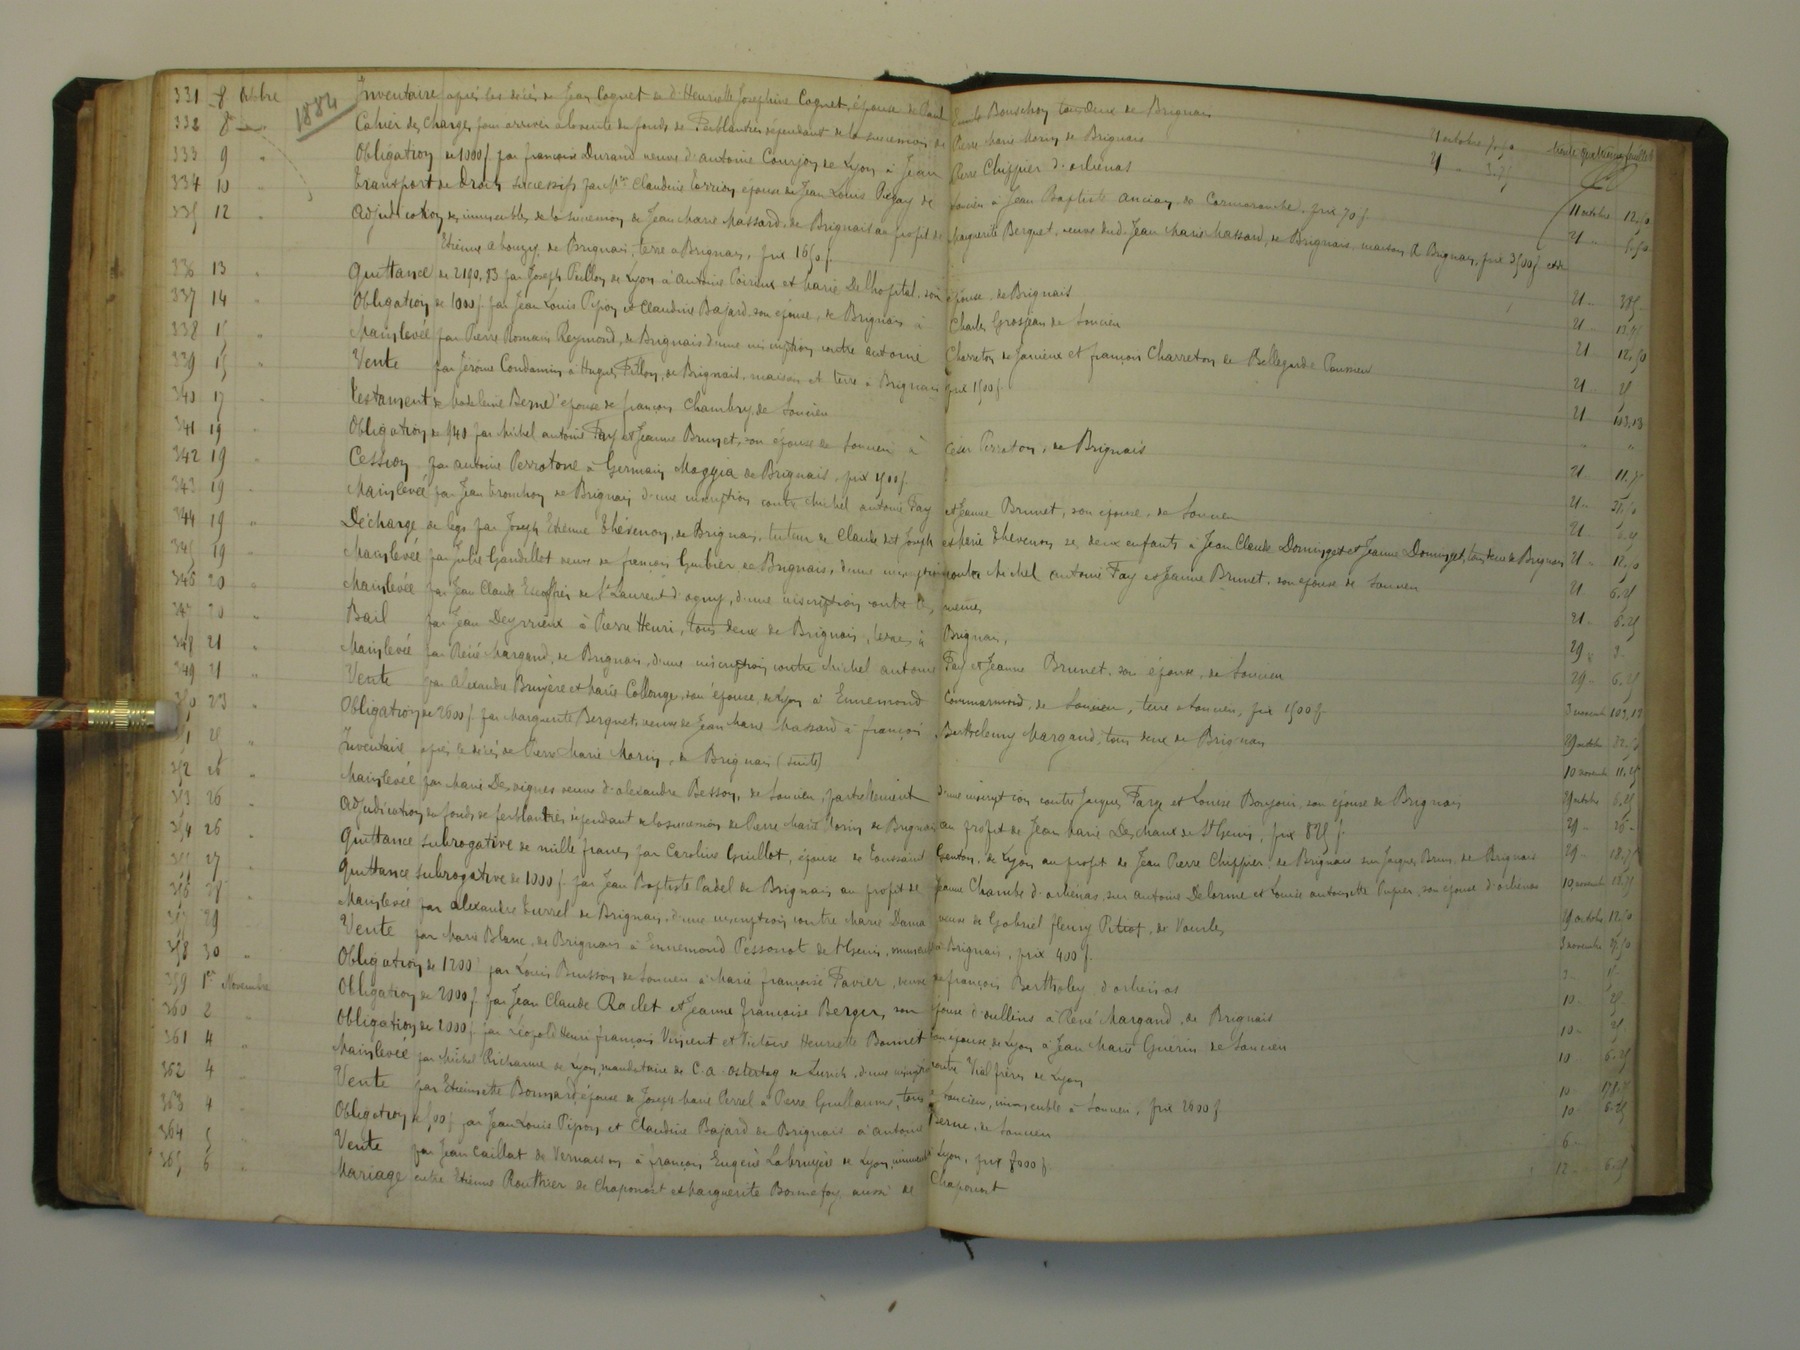 331 8 8bre 1884 Inventaire après les décès de Jean Coquet et d'Henriette Joséphine Coquet, épouse de Paul Bouschon tous deux de Brignais
332 8 Cahier des charges pour arriver à la vente du fonds de Ferblantier dépendant de la succession de Pierre Marie Morin de Brignais 21 octobre
333 9 " Obligation de 1000 f par françoise Durand veuve d'antoine Courjon de Lyon à Jean Pierre Chippier d'orliénas 21 "
334 10 " Transport de Droits successifs par Mme Claudine épouse de Jean Louis de Soucieu à Jean Baptiste Ancian de Cormoranche, prix 70 f. 11 octobre 12,50
335 12 " Adjudication des immeubles de la succession de Jean Marie Massard, de Brignais au profit de Marguerite Berquet, veuve dud. Jean Marie Massard, de Brignais, maison à Brignais, prix 3500 f et de 21 "
Etienne de Brignais, terre à Brignais, prix 1650 f.
336 13 " Quittance de 2190,83 par Joseph de Lyon à Antoine Poirieux et Marie Delhopital, son épouse, de Brignais 21 "
337 14 " Obligation de 1000 f par Jean Louis Pipon et Claudine Bajard son épouse, de Brignais à Charles Grosjean de Soucieu 21 "
338 15 " Mainlevée par Pierre Romain Reymond, de Brignais d'une inscription contre antoine Charreton de et françois Charreton de Bellegarde 21 12,50
339 15 " Vente par Jérôme Condamin à Hugues Fillon, de Brignais, maison et terre à Brignais prix 1500 f. 21
340 17 " Testament de Madeleine Berne épouse de françois Chambry, de Soucieu 21 103,13
341 19 " Obligation de 940 par Michel antoine Fay et Jeanne Brunet, son épouse de Soucieu à César Perraton, de Brignais "
342 19 " Cession par antoine Perratone à Germain Maggia de Brignais, prix 500 f. 21
343 19 " Mainlevée par Jean Tronchon de Brignais d'une inscription contre Michel antoine Fay et Jeanne Brunet, son épouse, de Soucieu 21
344 19 " Décharge de legs par Joseph Etienne Thévenon, de Brignais, tuteur de Claude dit Joseph et Marie Thevenon ses deux enfants à Jean Claude Dominget et Jeanne Dominget, tous deux de Brignais 21 12,50
345 19 " Mainlevée par Julie Gaudillot veuve de françois Gubier de Brignais, d'une inscription contre Michel antoine Fay et Jeanne Brunet, son épouse de Soucieu 21 6,25
346 20 " Mainlevée par Jean Claude Escoffier de St Laurent d'agny, d'une inscription contre les mêmes 21
347 20 " Bail par Jean Deyrrieux à Pierre Henri, tous deux de Brignais, terres à Brignais, 29
348 21 " Mainlevée par René Margand, de Brignais, d'une inscription contre Michel antoine Fay et Jeanne Brunet, son épouse, de Soucieu 29 " 6,25
349 21 " Vente par Alexandre Bruyère et Marie Collonge, son épouse, de Lyon à Ennemond Commarmond, de Soucieu, terre à Soucieu, prix 1500 f. 3 novembre 103,13
350 23 " Obligation de 2600 f par Marguerite Berquet, veuve de Jean Marie Massard à françois Barthelemy Margand, tous deux de Brignais 29 octobre
351 25 " Inventaire après le décès de Pierre Marie Morin, de Brignais (suite) 10 novembre 11,25
352 26 " Mainlevée par Marie Desvignes veuve d'alexandre Besson, de Soucieu, partiellement d'une inscription contre Jacques Farge et Louise Bonjour, son épouse de Brignais 29 octobre 6,25
353 26 " Adjudication du fonds de ferblantier dépendant de la succession de Pierre Marie Morin de Brignais au profit de Jean Marie Deschaux de St Genis, prix 825 f. 29 "
354 26 " Quittance subrogative de mille francs par Caroline Guillot, épouse de Toussaint de Lyon au profit de Jean Pierre Chippier de Brignais sur Jacques Brun, de Brignais 29 " 18,75
355 27 " Quittance subrogative de 1000 f. par Jean Baptiste Padel de Brignais au profit de Jeanne Chambe d'orliénas, sur antoine Delorme et Louise antoinette Pupier, son épouse d'orliénas 10 novembre 18,75
356 28 " Mainlevée par alexandre Turrel de Brignais, d'une inscription contre Marie Dama veuve de Gabriel fleury Pitiot, de Vourles 29 octobre 12,50
357 29 " Vente par Marie Blanc, de Brignais à Ennemond Pessonot de St Genis, immeuble à Brignais, prix 400 f. 3 novembre
358 30 " Obligation de 1200 par Louis Brusson de Soucieu à Marie françoise Favier, veuve de françois Bertholey d'orliénas 3
359 1er Novembre Obligation de 2000 f par Jean Claude Raclet et Jeanne Françoise Berger, son épouse d'oullins à René Margand, de Brignais 10 " 25
360 2 " Obligation de 2000 f. par Léopold Henri françois Vincent et Victoire Henriette Bonnet son épouse de Lyon à Jean Marie Guérin de Soucieu 10 " 25
361 4 " Mainlevée par Michel Richarme de Lyon, mandataire de C.a. Ostertag de Zurich, d'une inscription contre Vial frères de Lyon 10 6,25
362 4 " Vente par Etiennette Bonnard, épouse de Joseph Marie Perrel à Pierre Guillaume, tous de Soucieu, immeuble à Soucieu, prix 2600 f. 10
363 4 " Obligation de 500 f par Jean Louis Pipon et Claudine Bajard de Brignais à antoine Berne, de Soucieu 10 6,25
364 5 " Vente par Jean Caillat de Vernaison à françois Eugène Labruyère de Lyon, immeuble à Lyon, prix 7000 f. 6
365 6 " Mariage entre Etienne Routhier de Chaponost et Marguerite Bonnefoy aussi de Chaponost 12 " 6,25